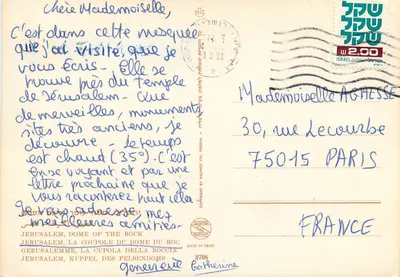 Chère Mademoiselle,
C'est dans cette mosquée
que j'ai visité, que je
vous écris - Elle se
trouve près du temple
de Jérusalem - Que
de merveilles, monuments,
sites très anciens, je
découvre - Le temps
est chaud (35°). C'est
en voyant et par une
lettre prochaine que je
vous raconterai tout cela
Je vous adresse mes
meilleures amitiés.
Geneviève Catherine
JERUSALEM, DOME OF THE ROCK
JERUSALEM, LA COUPOLE DU DOME DU ROC
GERUSALEMME, LA CUPOLA DELLA ROCCIA
JERUSALEM, KUPPEL DES FELSENDOMS
8786
שקל
שקל
שקל
2.00
ISRAEL
Mademoiselle AGNESSE
30, rue Lecourbe
75015 PARIS
FRANCE